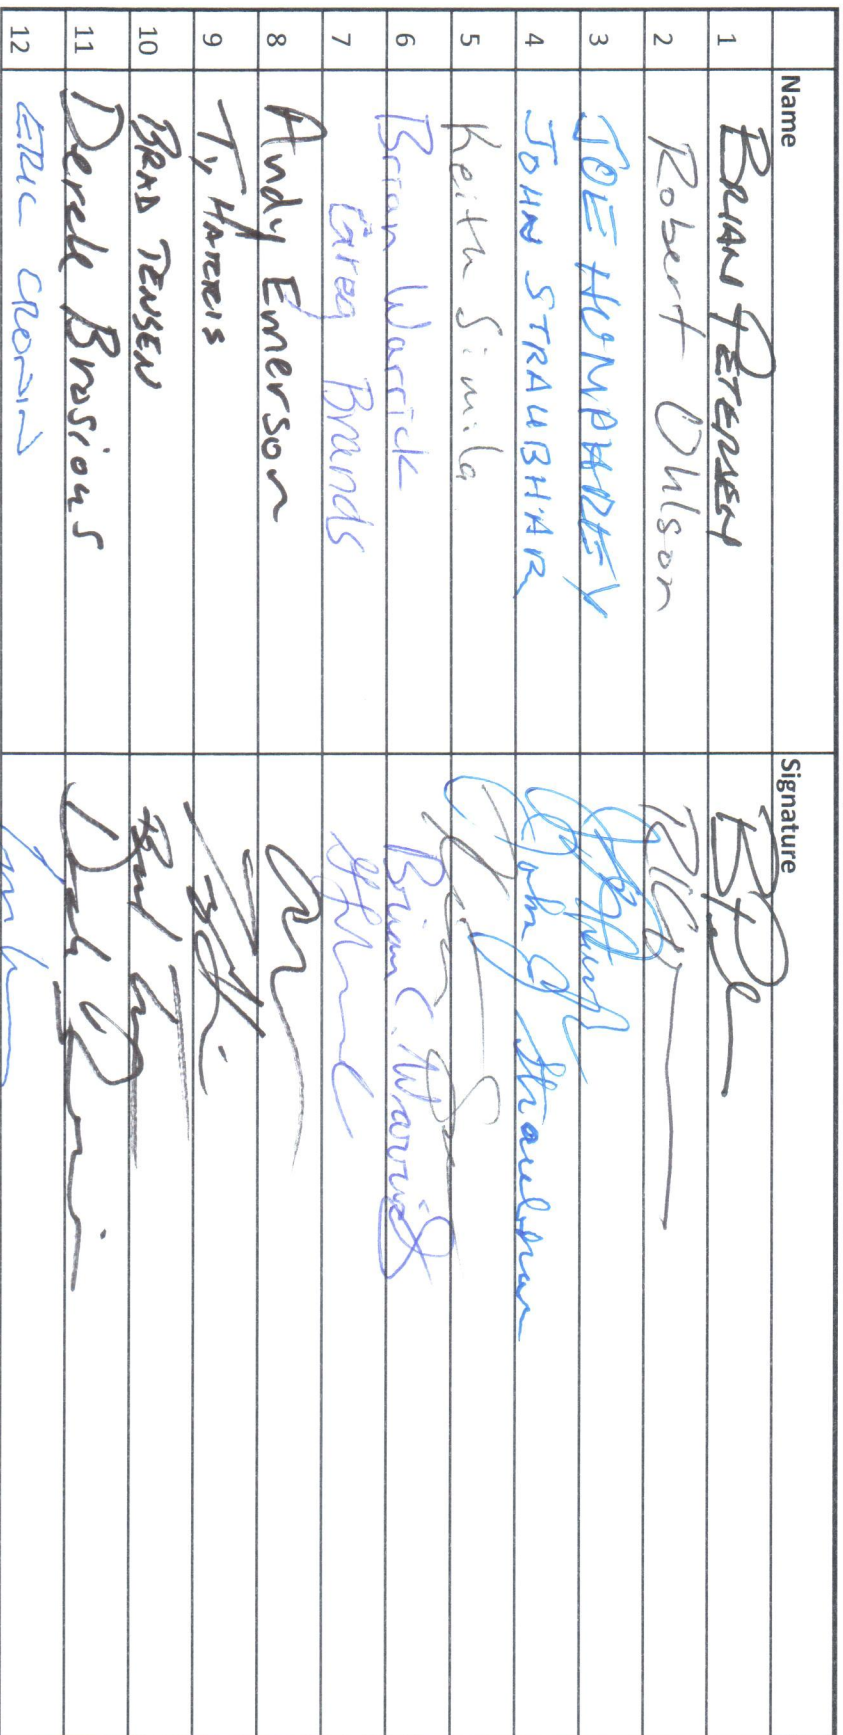 Name Signature
1 BRIAN PETERSEN
2 Robert Ohlson
3 JOE HUMPHREY
4 JOHN STRAUBHAR John J Straubhar
5 Keith Simila
6 Brian Warrick Brian C. Warrick
7 Greg Brands
8 Andy Emerson
9 Ty HARRIS
10 BRAD JENSEN
11 Derek Brosious
12 ERIC CRONIN